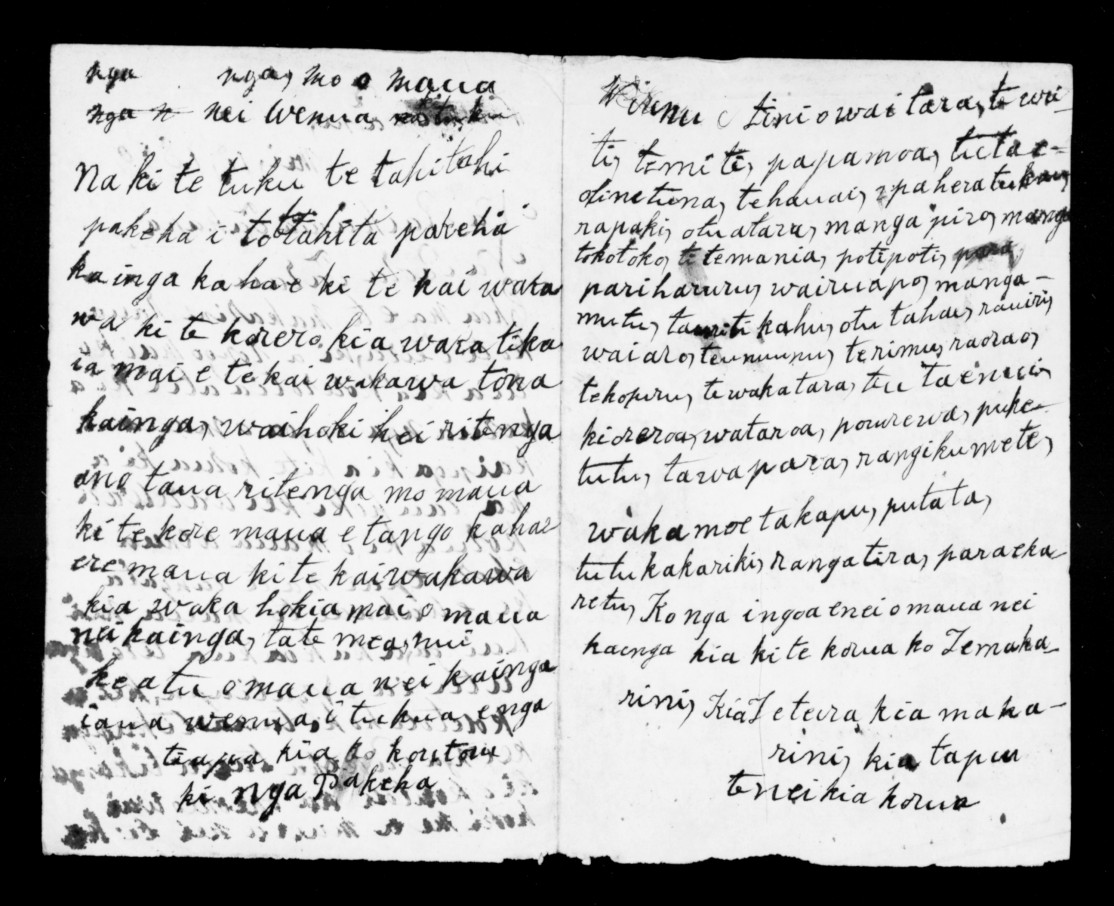 nga nga, mo o maua
nga n nei Wenua,
Na ki te tuku te tahi tahi
pakeha i to tahita pakeha
kainga ka hae ki te kai waka
wa ki te korero, kia waka tika
ia mai e te kai wakawa tona
kainga, waihoki hei ritenga
ano taua ritenga mo maua
ki te kore maua e tango ka hae
ere maua ki te kaiwakawa
kia waka hokia mai o maua
nei kainga, ta te mea, nui
ke atu o maua nei kainga
iaua wenua, i tukua e nga
tiapua kia ko koutou
ki nga Pakeha
Wiremu tini o wai tara, te wri
ti, te mi ti, papamoa, tutae
otinetuna, te hauai, paheratukau
rapaki, otuatara, manga piro, manga
tokotoko, te temania, potipoti,
pariharuru, wairuapo, manga-
mutu, tauriti kahu, otu tahau, rauiri,
waiaro, teunuunu, terimu, raorao,
tekopuru, te wakatara, tu taenui,
kioreroa, wataroa, pourewa, puke-
tutu, tawapara, rangikumete,
waka moe takapu, putata,
tutu kakariki, rangatira, paraeka-
retu, Ko nga ingoa enei o maua nei
kainga kia kite korua ko Te maka-
rini, Kia Te teira, kia maka-
rini, kia tapu
tenei kia korua